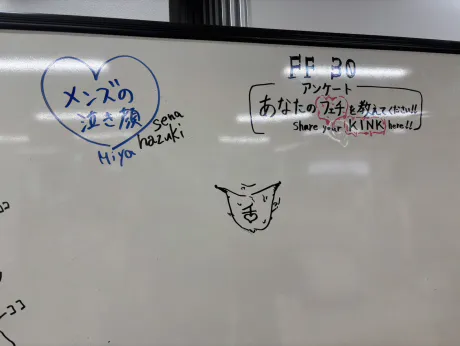 メンズの
泣き顔
sena
hazuki
Miya
FF 30
アンケート
あなたのフェチを教えてください!!
Share your KINK here!!
舌